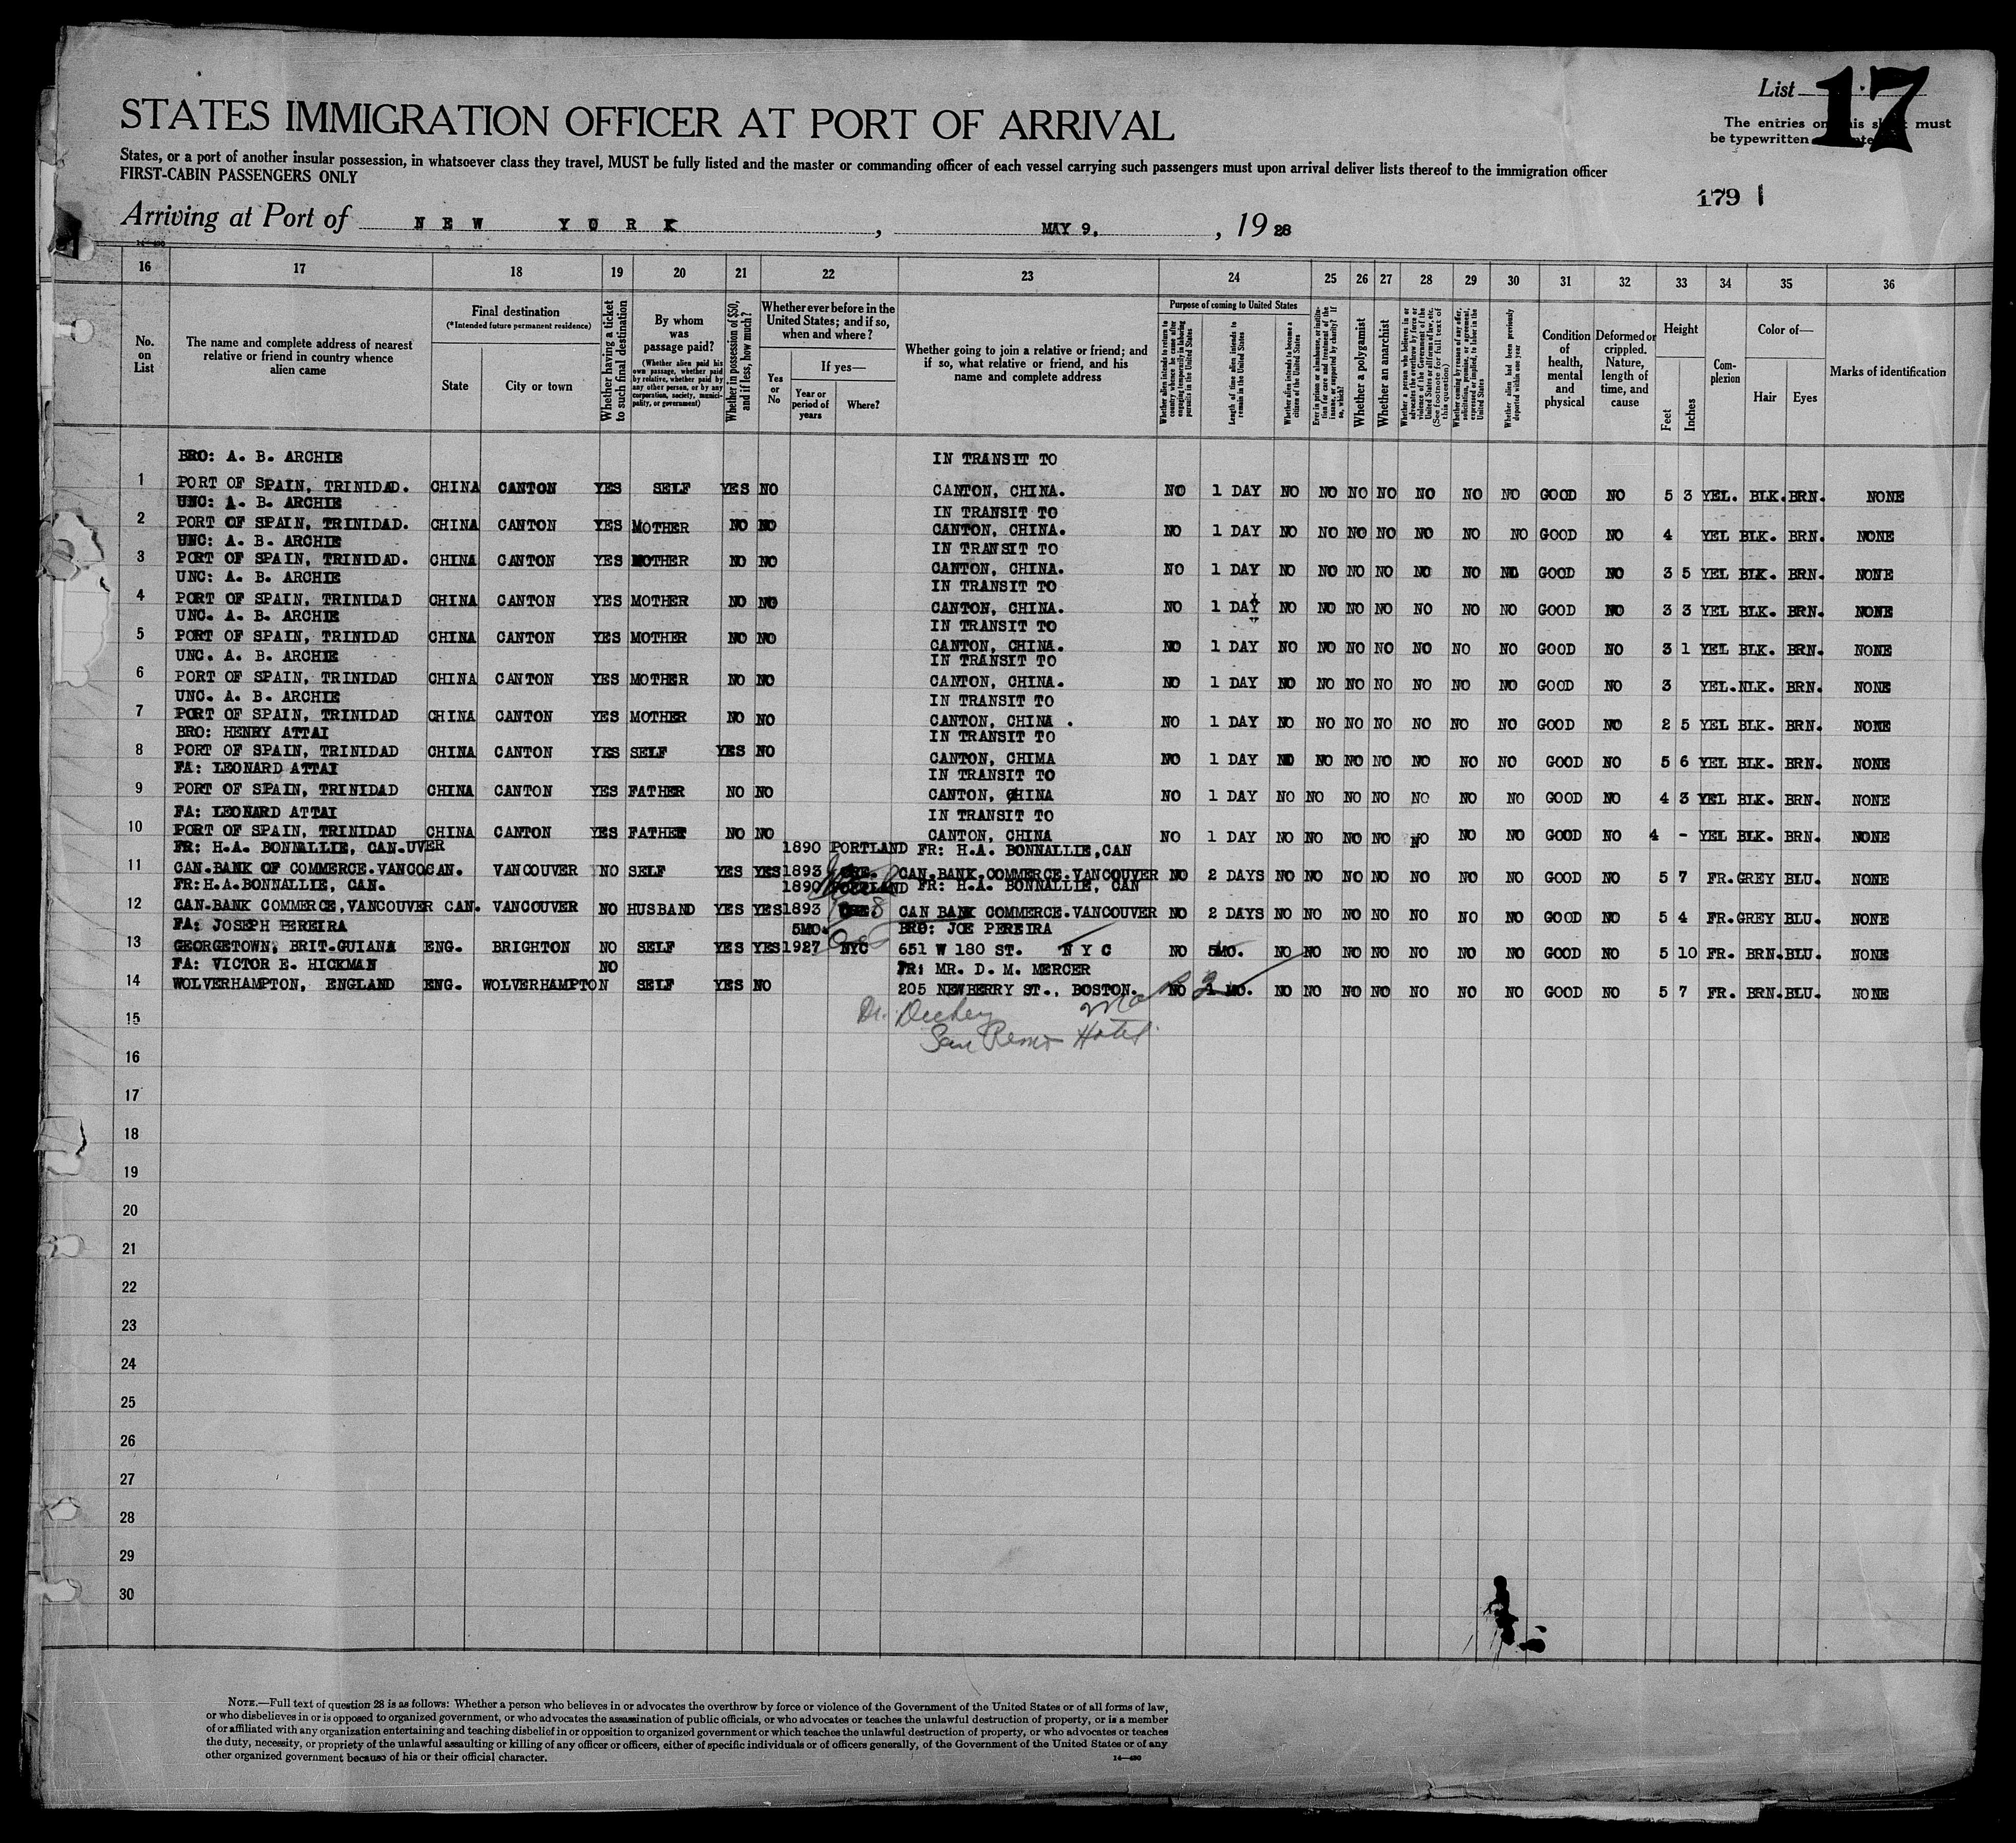 List 17
STATES IMMIGRATION OFFICER AT PORT OF ARRIVAL
The entries on this sheet must
be typewritten
States, or a port of another insular possession, in whatsoever class they travel, MUST be fully listed and the master or commanding officer of each vessel carrying such passengers must upon arrival deliver lists thereof to the immigration officer
FIRST-CABIN PASSENGERS ONLY
179 1
Arriving at Port of NEW YORK, MAY 9, 1928
16 17 18 19 20 21 22 23 24 25 26 27 28 29 30 31 32 33 34 35 36
No. on List
The name and complete address of nearest relative or friend in country whence alien came
Final destination
(*Intended future permanent residence)
State
City or town
Whether having a ticket to such final destination
By whom was passage paid?
(Whether alien paid his own passage, whether paid by relative, whether paid by any other person, or by any corporation, society, municipality, or government)
Whether in possession of $50, and if less, how much?
Whether ever before in the United States; and if so, when and where?
Yes or No
If yes—
Year or period of years
Where?
Whether going to join a relative or friend; and if so, what relative or friend, and his name and complete address
Purpose of coming to United States
Whether alien intends to return to country whence he came after engaging temporarily in laboring pursuits in the United States
Length of time alien intends to remain in the United States
Whether alien intends to become a citizen of the United States
Ever in prison or almshouse, or institution for care and treatment of the insane, or supported by charity? If so, which?
Whether a polygamist
Whether an anarchist
Whether a person who believes in or advocates the overthrow by force or violence of the Government of the United States or all forms of law, etc. (See footnote for full text of this question)
Whether coming by reason of any offer, solicitation, promise, or agreement, expressed or implied, to labor in the United States
Whether alien had been previously deported within one year
Condition of health, mental and physical
Deformed or crippled. Nature, length of time, and cause
Height
Feet
Inches
Complexion
Color of—
Hair
Eyes
Marks of identification
BRO: A. B. ARCHIE IN TRANSIT TO
1 PORT OF SPAIN, TRINIDAD. CHINA CANTON YES SELF YES NO CANTON, CHINA. NO 1 DAY NO NO NO NO NO NO NO GOOD NO 5 3 YEL. BLK. BRN. NONE
UNC: A. B. ARCHIE IN TRANSIT TO
2 PORT OF SPAIN, TRINIDAD. CHINA CANTON YES MOTHER NO NO CANTON, CHINA. NO 1 DAY NO NO NO NO NO NO NO GOOD NO 4 YEL BLK. BRN. NONE
UNC: A. B. ARCHIE IN TRANSIT TO
3 PORT OF SPAIN, TRINIDAD. CHINA CANTON YES MOTHER NO NO CANTON, CHINA. NO 1 DAY NO NO NO NO NO NO NO GOOD NO 3 5 YEL BLK. BRN. NONE
UNC: A. B. ARCHIE IN TRANSIT TO
4 PORT OF SPAIN, TRINIDAD CHINA CANTON YES MOTHER NO NO CANTON, CHINA. NO 1 DAY NO NO NO NO NO NO NO GOOD NO 3 3 YEL BLK. BRN. NONE
UNC. A. B. ARCHIE IN TRANSIT TO
5 PORT OF SPAIN, TRINIDAD CHINA CANTON YES MOTHER NO NO CANTON, CHINA. NO 1 DAY NO NO NO NO NO NO NO GOOD NO 3 1 YEL BLK. BRN. NONE
UNC. A. B. ARCHIE IN TRANSIT TO
6 PORT OF SPAIN, TRINIDAD CHINA CANTON YES MOTHER NO NO CANTON, CHINA. NO 1 DAY NO NO NO NO NO NO NO GOOD NO 3 YEL. NLK. BRN. NONE
UNC. A. B. ARCHIE IN TRANSIT TO
7 PORT OF SPAIN, TRINIDAD CHINA CANTON YES MOTHER NO NO CANTON, CHINA . NO 1 DAY NO NO NO NO NO NO NO GOOD NO 2 5 YEL BLK. BRN. NONE
BRO: HENRY ATTAI IN TRANSIT TO
8 PORT OF SPAIN, TRINIDAD CHINA CANTON YES SELF YES NO CANTON, CHIMA NO 1 DAY NO NO NO NO NO NO NO GOOD NO 5 6 YEL BLK. BRN. NONE
FA: LEONARD ATTAI IN TRANSIT TO
9 PORT OF SPAIN, TRINIDAD CHINA CANTON YES FATHER NO NO CANTON, CHINA NO 1 DAY NO NO NO NO NO NO NO GOOD NO 4 3 YEL BLK. BRN. NONE
FA: LEONARD ATTAI IN TRANSIT TO
10 PORT OF SPAIN, TRINIDAD CHINA CANTON YES FATHER NO NO CANTON, CHINA NO 1 DAY NO NO NO NO NO NO NO GOOD NO 4 - YEL BLK. BRN. NONE
FR: H.A. BONNALLIE, CAN.UVER 1890 PORTLAND FR: H.A. BONNALLIE,CAN
11 CAN.BANK OF COMMERCE.VANCOCAN. VANCOUVER NO SELF YES YES 1893 ORE. CAN.BANK.COMMERCE.VANCOUVER NO 2 DAYS NO NO NO NO NO NO NO GOOD NO 5 7 FR. GREY BLU. NONE
FR:H.A.BONNALLIE, CAN. 1890 PORTLAND FR: H.A. BONNALLIE, CAN
12 CAN.BANK COMMERCE,VANCOUVER CAN. VANCOUVER NO HUSBAND YES YES 1893 CAN BANK COMMERCE.VANCOUVER NO 2 DAYS NO NO NO NO NO NO NO GOOD NO 5 4 FR. GREY BLU. NONE
FA: JOSEPH PEREIRA 5MO. BRO: JOE PEREIRA
13 GEORGETOWN, BRIT.GUIANA ENG. BRIGHTON NO SELF YES YES 1927 NYC 651 W 180 ST. N Y C NO 5MO. NO NO NO NO NO NO NO GOOD NO 5 10 FR. BRN. BLU. NONE
FA: VICTOR E. HICKMAN NO FR: MR. D. M. MERCER
14 WOLVERHAMPTON, ENGLAND ENG. WOLVERHAMPTON SELF YES NO 205 NEWBERRY ST., BOSTON. NO 2 MO. NO NO NO NO NO NO NO GOOD NO 5 7 FR. BRN. BLU. NONE
15 Dr.
San Remo Hotel
16
17
18
19
20
21
22
23
24
25
26
27
28
29
30
NOTE.—Full text of question 28 is as follows: Whether a person who believes in or advocates the overthrow by force or violence of the Government of the United States or of all forms of law,
or who disbelieves in or is opposed to organized government, or who advocates the assassination of public officials, or who advocates or teaches the unlawful destruction of property, or is a member
of or affiliated with any organization entertaining and teaching disbelief in or opposition to organized government or which teaches the unlawful destruction of property, or who advocates or teaches
the duty, necessity, or propriety of the unlawful assaulting or killing of any officer or officers, either of specific individuals or of officers generally, of the Government of the United States or of any
other organized government because of his or their official character.
14—490